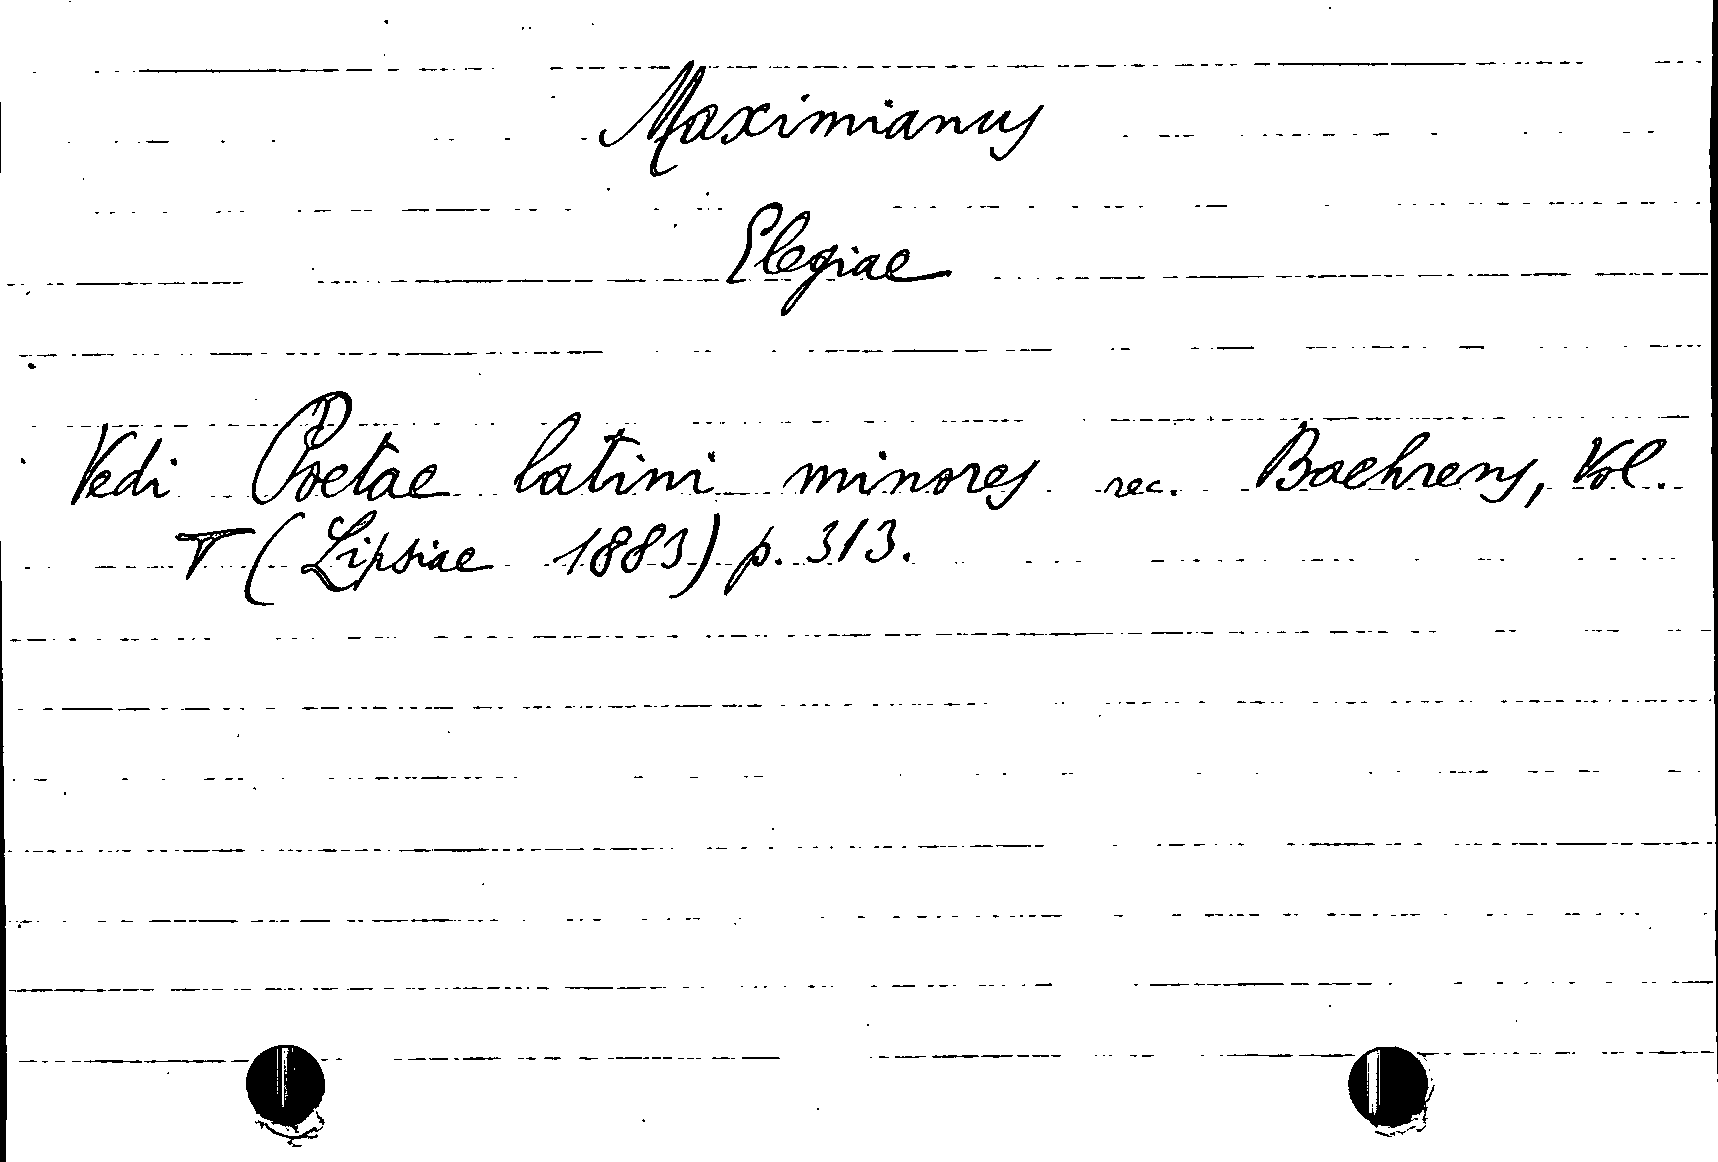 Maximianus
Elegiae
Vedi Poetae latini minores rec. Baehrens, Vol.
V (Lipsiae 1883) p. 313.